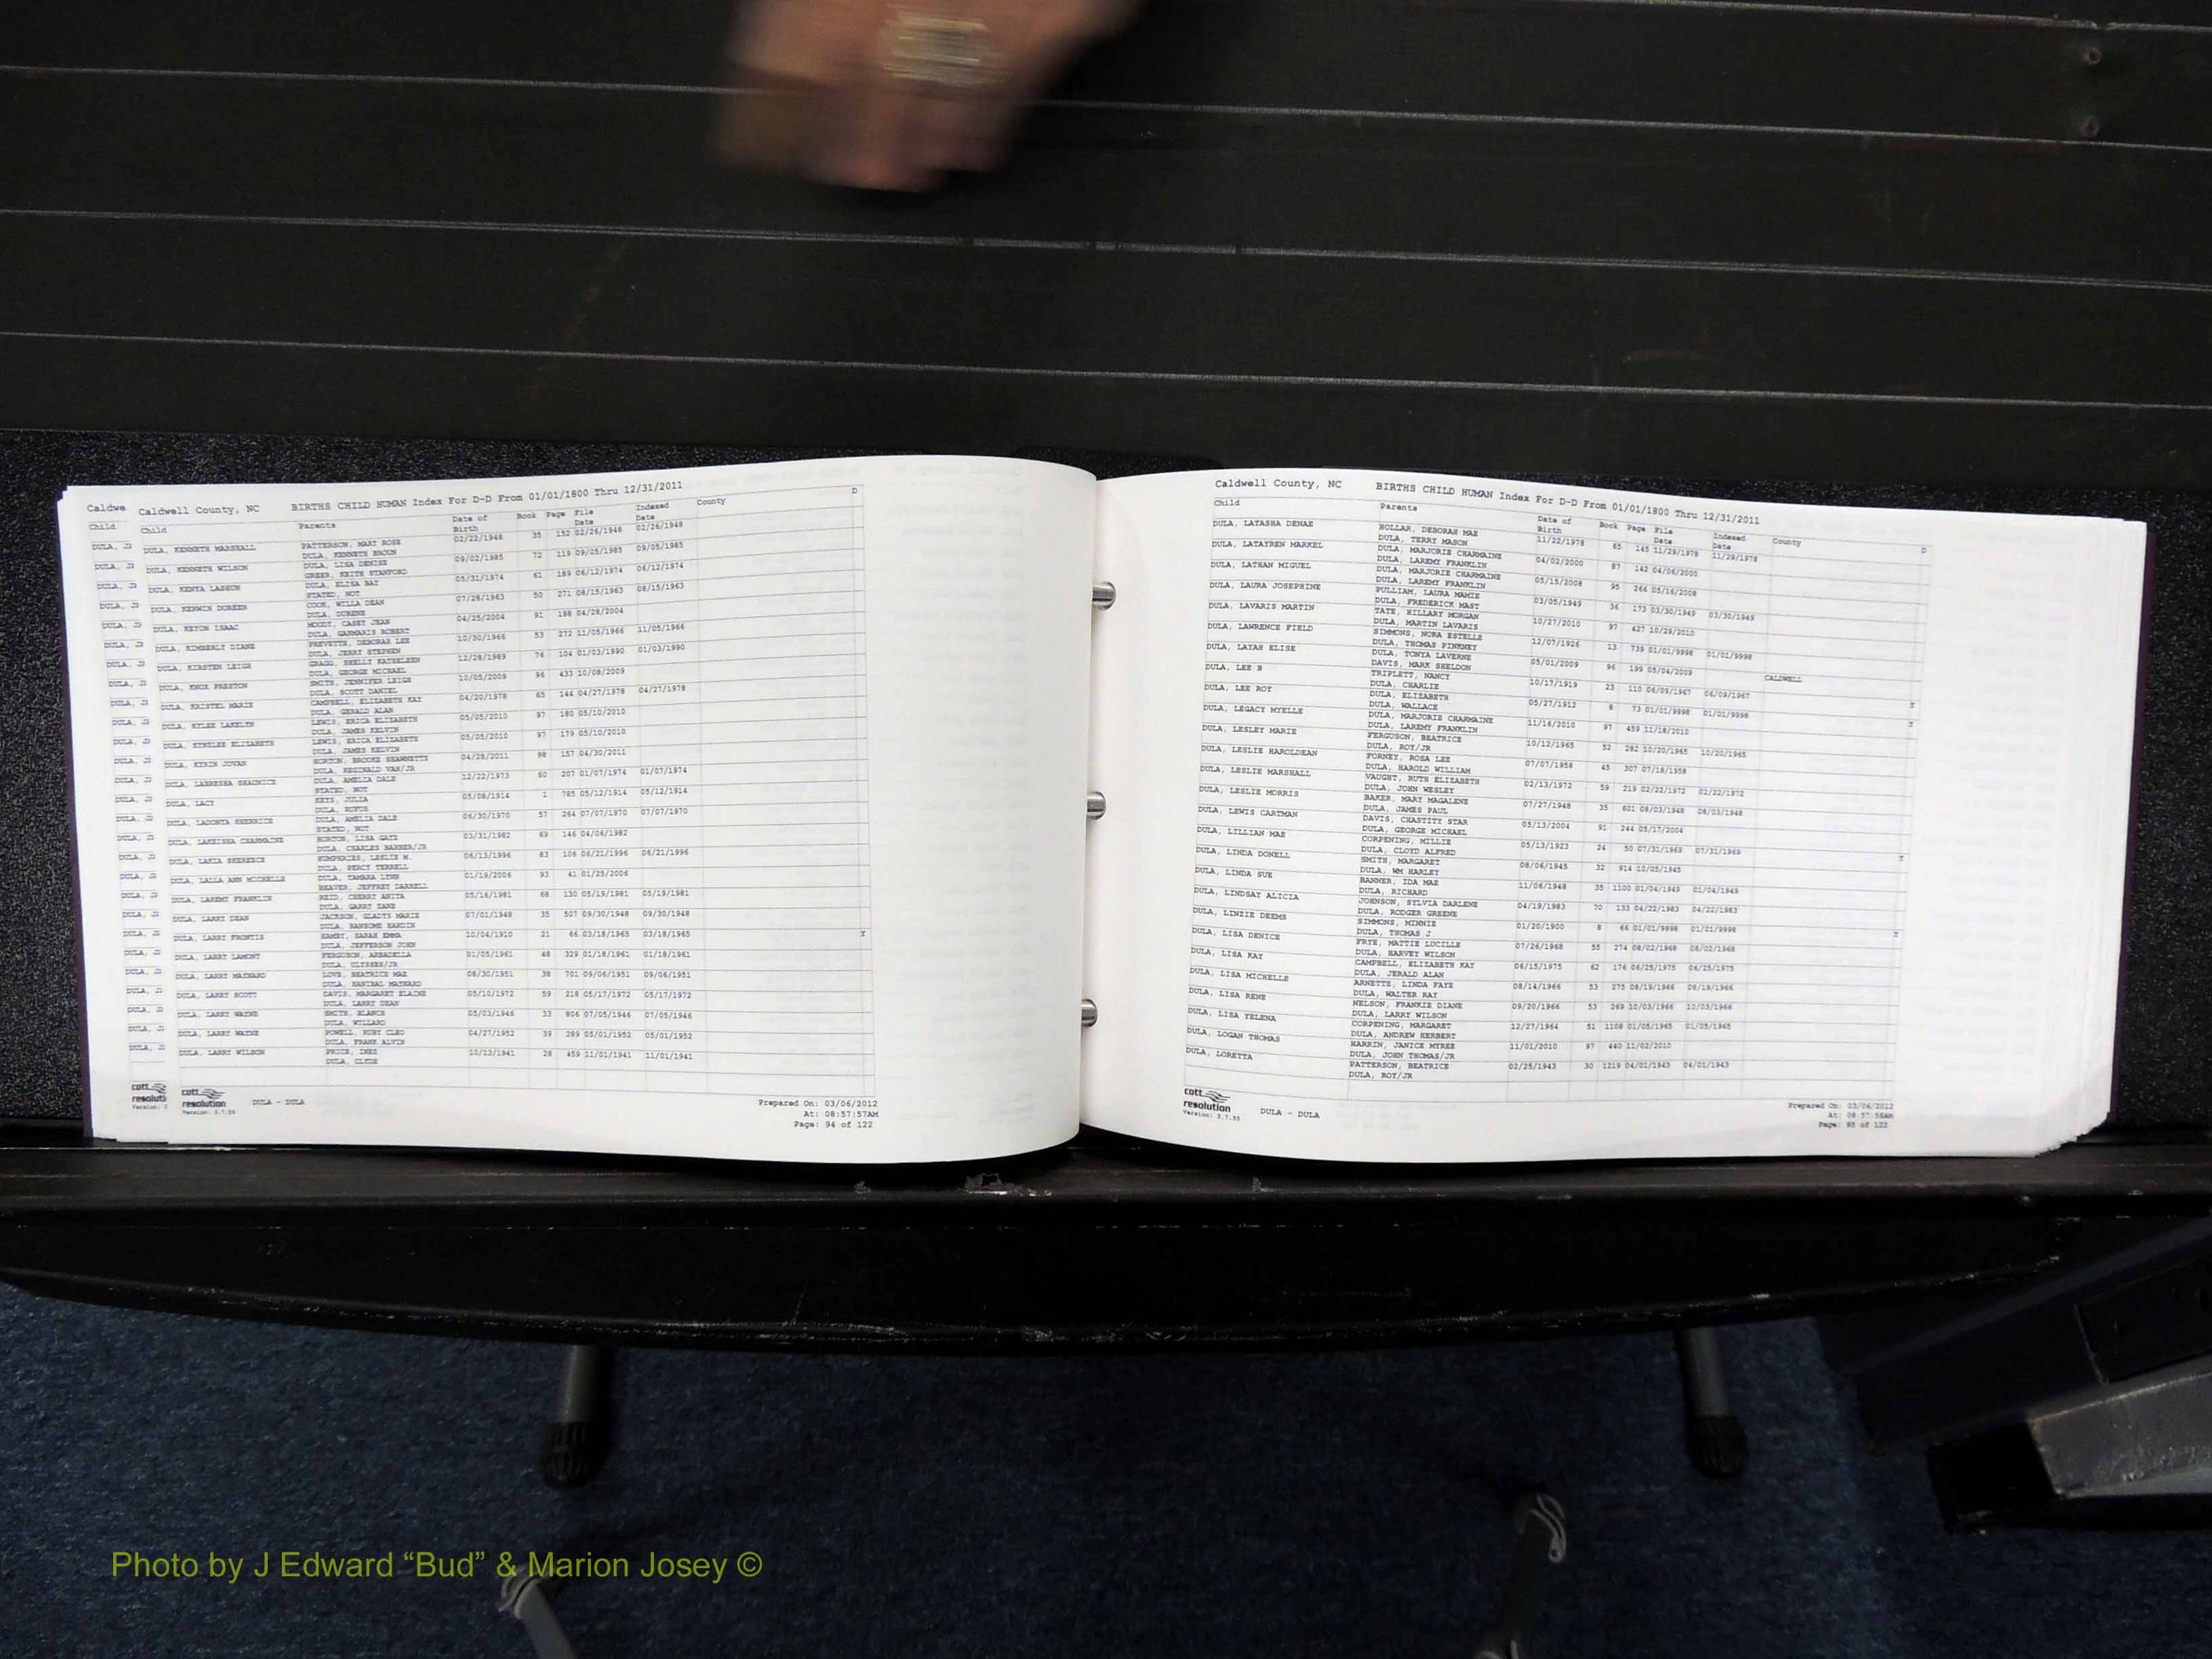 Caldwe
Child
Caldwell County, NC BIRTHS CHILD HUMAN Index For D-D From 01/01/1800 Thru 12/31/2011 D
Child Parents Date of Birth Book Page File Date Indexed Date County
DULA, KENNETH MARSHALL PATTERSON, MARY ROSE 02/22/1948 35 152 02/26/1948 02/26/1948
DULA, KENNETH BROUN
DULA, KENNETH WILSON DULA, LISA DENISE 09/02/1985 72 119 09/05/1985 09/05/1985
GREER, KEITH STANFORD
DULA, KENYA LASHUN DULA, ELISA BAY 05/31/1974 61 189 06/12/1974 06/12/1974
STATED, NOT
DULA, KERWIN DOREEN COOK, WILLA DEAN 07/28/1963 50 271 08/15/1963 08/15/1963
DULA, DURENE
DULA, KEYON ISAAC MOODY, CASEY JEAN 04/25/2004 91 188 04/28/2004
DULA, GARMARIS ROBERT
DULA, KIMBERLY DIANE PREVETTE, DEBORAH LEE 10/30/1966 53 272 11/05/1966 11/05/1966
DULA, JERRY STEPHEN
DULA, KIRSTEN LEIGH GRAGG, SHELLY KATHELEEN 12/28/1989 76 104 01/03/1990 01/03/1990
DULA, GEORGE MICHAEL
DULA, KNOX PRESTON SMITH, JENNIFER LEIGH 10/05/2009 96 433 10/08/2009
DULA, SCOTT DANIEL
DULA, KRISTEL MARIE CAMPBELL, ELIZABETH KAY 04/20/1978 65 144 04/27/1978 04/27/1978
DULA, GERALD ALAN
DULA, KYLEE LAKELYN LEWIS, ERICA ELIZABETH 05/05/2010 97 180 05/10/2010
DULA, JAMES KELVIN
DULA, KYNZLEE ELIZABETH LEWIS, ERICA ELIZABETH 05/05/2010 97 179 05/10/2010
DULA, JAMES KELVIN
DULA, KYRIN JOVAN HORTON, BROOKE SHAWNETTE 04/28/2011 98 157 04/30/2011
DULA, REGINALD VAN/JR
DULA, LABRESHA SHADNICE DULA, AMELIA DALE 12/22/1973 60 207 01/07/1974 01/07/1974
STATED, NOT
DULA, LACY KEYS, JULIA 05/08/1914 1 785 05/12/1914 05/12/1914
DULA, RUFUS
DULA, LADONYA SHERRICE DULA, AMELIA DALE 06/30/1970 57 264 07/07/1970 07/07/1970
STATED, NOT
DULA, LAKEISHA CHARMAINE HORTON, LISA GAYE 03/31/1982 69 146 04/06/1982
DULA, CHARLES BARBER/JR
DULA, LAKIA SHEREECE HUMPHRIES, LESLIE M. 06/13/1996 83 106 06/21/1996 06/21/1996
DULA, PERCY TERRELL
DULA, LALLA ANN MICHELLE DULA, TAMARA LYNN 01/19/2006 93 41 01/25/2006
BEAVER, JEFFREY DARRELL
DULA, LAREMY FRANKLIN REID, CHERRY ANITA 05/16/1981 68 130 05/19/1981 05/19/1981
DULA, GARRY ZANE
DULA, LARRY DEAN JACKSON, GLADYS MARIE 07/01/1948 35 507 09/30/1948 09/30/1948
DULA, RANSOME HARDIN
DULA, LARRY FRONTIS HAMBY, SARAH EMMA 10/04/1910 21 66 03/18/1965 03/18/1965 Y
DULA, JEFFERSON JOHN
DULA, LARRY LAMONT FERGUSON, ARBADELLA 01/05/1961 48 329 01/18/1961 01/18/1961
DULA, ULYSSES/JR
DULA, LARRY MAYNARD LOVE, BEATRICE MAE 08/30/1951 38 701 09/06/1951 09/06/1951
DULA, HANIBAL MAYNARD
DULA, LARRY SCOTT DAVIS, MARGARET ELAINE 05/10/1972 59 218 05/17/1972 05/17/1972
DULA, LARRY DEAN
DULA, LARRY WAYNE SMITH, BLANCH 05/03/1946 33 806 07/05/1946 07/05/1946
DULA, WILLARD
DULA, LARRY WAYNE POWELL, RUBY CLEO 04/27/1952 39 289 05/01/1952 05/01/1952
DULA, FRANK ALVIN
DULA, LARRY WILSON PRICE, INEZ 10/13/1941 28 459 11/01/1941 11/01/1941
DULA, CLYDE
cott resolution
Version: 3.7.55
DULA - DULA
Prepared On: 03/06/2012
At: 08:57:57AM
Page: 94 of 122
Caldwell County, NC BIRTHS CHILD HUMAN Index For D-D From 01/01/1800 Thru 12/31/2011 D
Child Parents Date of Birth Book Page File Date Indexed Date County
DULA, LATASHA DENAE HOLLAR, DEBORAH MAE 11/22/1978 65 145 11/29/1978 11/29/1978
DULA, TERRY MASON
DULA, LATAYREN MARKEL DULA, MARJORIE CHARMAINE 04/02/2000 87 142 04/06/2000
DULA, LAREMY FRANKLIN
DULA, LATHAN MIGUEL DULA, MARJORIE CHARMAINE 05/15/2008 95 266 05/16/2008
DULA, LAREMY FRANKLIN
DULA, LAURA JOSEPHINE PULLIAM, LAURA MAMIE 03/05/1949 36 173 03/30/1949 03/30/1949
DULA, FREDERICK MAST
DULA, LAVARIS MARTIN TATE, HILLARY MORGAN 10/27/2010 97 427 10/29/2010
DULA, MARTIN LAVARIS
DULA, LAWRENCE FIELD SIMMONS, NORA ESTELLE 12/07/1926 13 739 01/01/9998 01/01/9998
DULA, THOMAS PINKNEY
DULA, LAYAH ELISE DULA, TONYA LAVERNE 05/01/2009 96 199 05/04/2009
DAVIS, MARK SHELDON
DULA, LEE B TRIPLETT, NANCY 10/17/1919 23 110 06/09/1967 06/09/1967 CALDWELL Y
DULA, CHARLIE
DULA, LEE ROY DULA, ELIZABETH 05/27/1912 8 73 01/01/9998 01/01/9998 Y
DULA, WALLACE
DULA, LEGACY MYELLE DULA, MARJORIE CHARMAINE 11/16/2010 97 459 11/18/2010
DULA, LAREMY FRANKLIN
DULA, LESLEY MARIE FERGUSON, BEATRICE 10/12/1965 52 282 10/20/1965 10/20/1965
DULA, ROY/JR
DULA, LESLIE HAROLDEAN FORNEY, ROSA LEE 07/07/1958 45 307 07/18/1958
DULA, HAROLD WILLIAM
DULA, LESLIE MARSHALL VAUGHT, RUTH ELIZABETH 02/13/1972 59 219 02/22/1972 02/22/1972
DULA, JOHN WESLEY
DULA, LESLIE MORRIS BAKER, MARY MAGALENE 07/27/1948 35 601 08/03/1948 08/03/1948
DULA, JAMES PAUL
DULA, LEWIS CARTMAN DAVIS, CHASTITY STAR 05/13/2004 91 244 05/17/2004
DULA, GEORGE MICHAEL
DULA, LILLIAN MAE CORPENING, MILLIE 05/13/1923 24 50 07/31/1969 07/31/1969 Y
DULA, CLOYD ALFRED
DULA, LINDA DONELL SMITH, MARGARET 08/06/1945 32 914 10/05/1945
DULA, WM HARLEY
DULA, LINDA SUE BANNER, IDA MAE 11/06/1948 35 1100 01/04/1949 01/04/1949
DULA, RICHARD
DULA, LINDSAY ALICIA JOHNSON, SYLVIA DARLENE 04/19/1983 70 133 04/22/1983 04/22/1983
DULA, RODGER GREENE
DULA, LINZIE DEEMS SIMMONS, MINNIE 01/20/1900 8 66 01/01/9998 01/01/9998 Y
DULA, THOMAS J
DULA, LISA DENICE FRYE, MATTIE LUCILLE 07/26/1968 55 274 08/02/1968 08/02/1968
DULA, HARVEY WILSON
DULA, LISA KAY CAMPBELL, ELIZABETH KAY 06/15/1975 62 176 06/25/1975 06/25/1975
DULA, JERALD ALAN
DULA, LISA MICHELLE ARNETTE, LINDA FAYE 08/14/1966 53 275 08/19/1966 08/19/1966
DULA, WALTER RAY
DULA, LISA RENE NELSON, FRANKIE DIANE 09/20/1966 53 269 10/03/1966 10/03/1966
DULA, LARRY WILSON
DULA, LISA YELENA CORPENING, MARGARET 12/27/1964 51 1108 01/05/1965 01/05/1965
DULA, ANDREW HERBERT
DULA, LOGAN THOMAS HARRIN, JANICE MYREE 11/01/2010 97 440 11/02/2010
DULA, JOHN THOMAS/JR
DULA, LORETTA PATTERSON, BEATRICE 02/25/1943 30 1219 04/01/1943 04/01/1943
DULA, ROY/JR
cott resolution
Version: 3.7.55
DULA - DULA
Prepared On: 03/06/2012
At: 08:57:58AM
Page: 95 of 122
Photo by J Edward “Bud” & Marion Josey ©